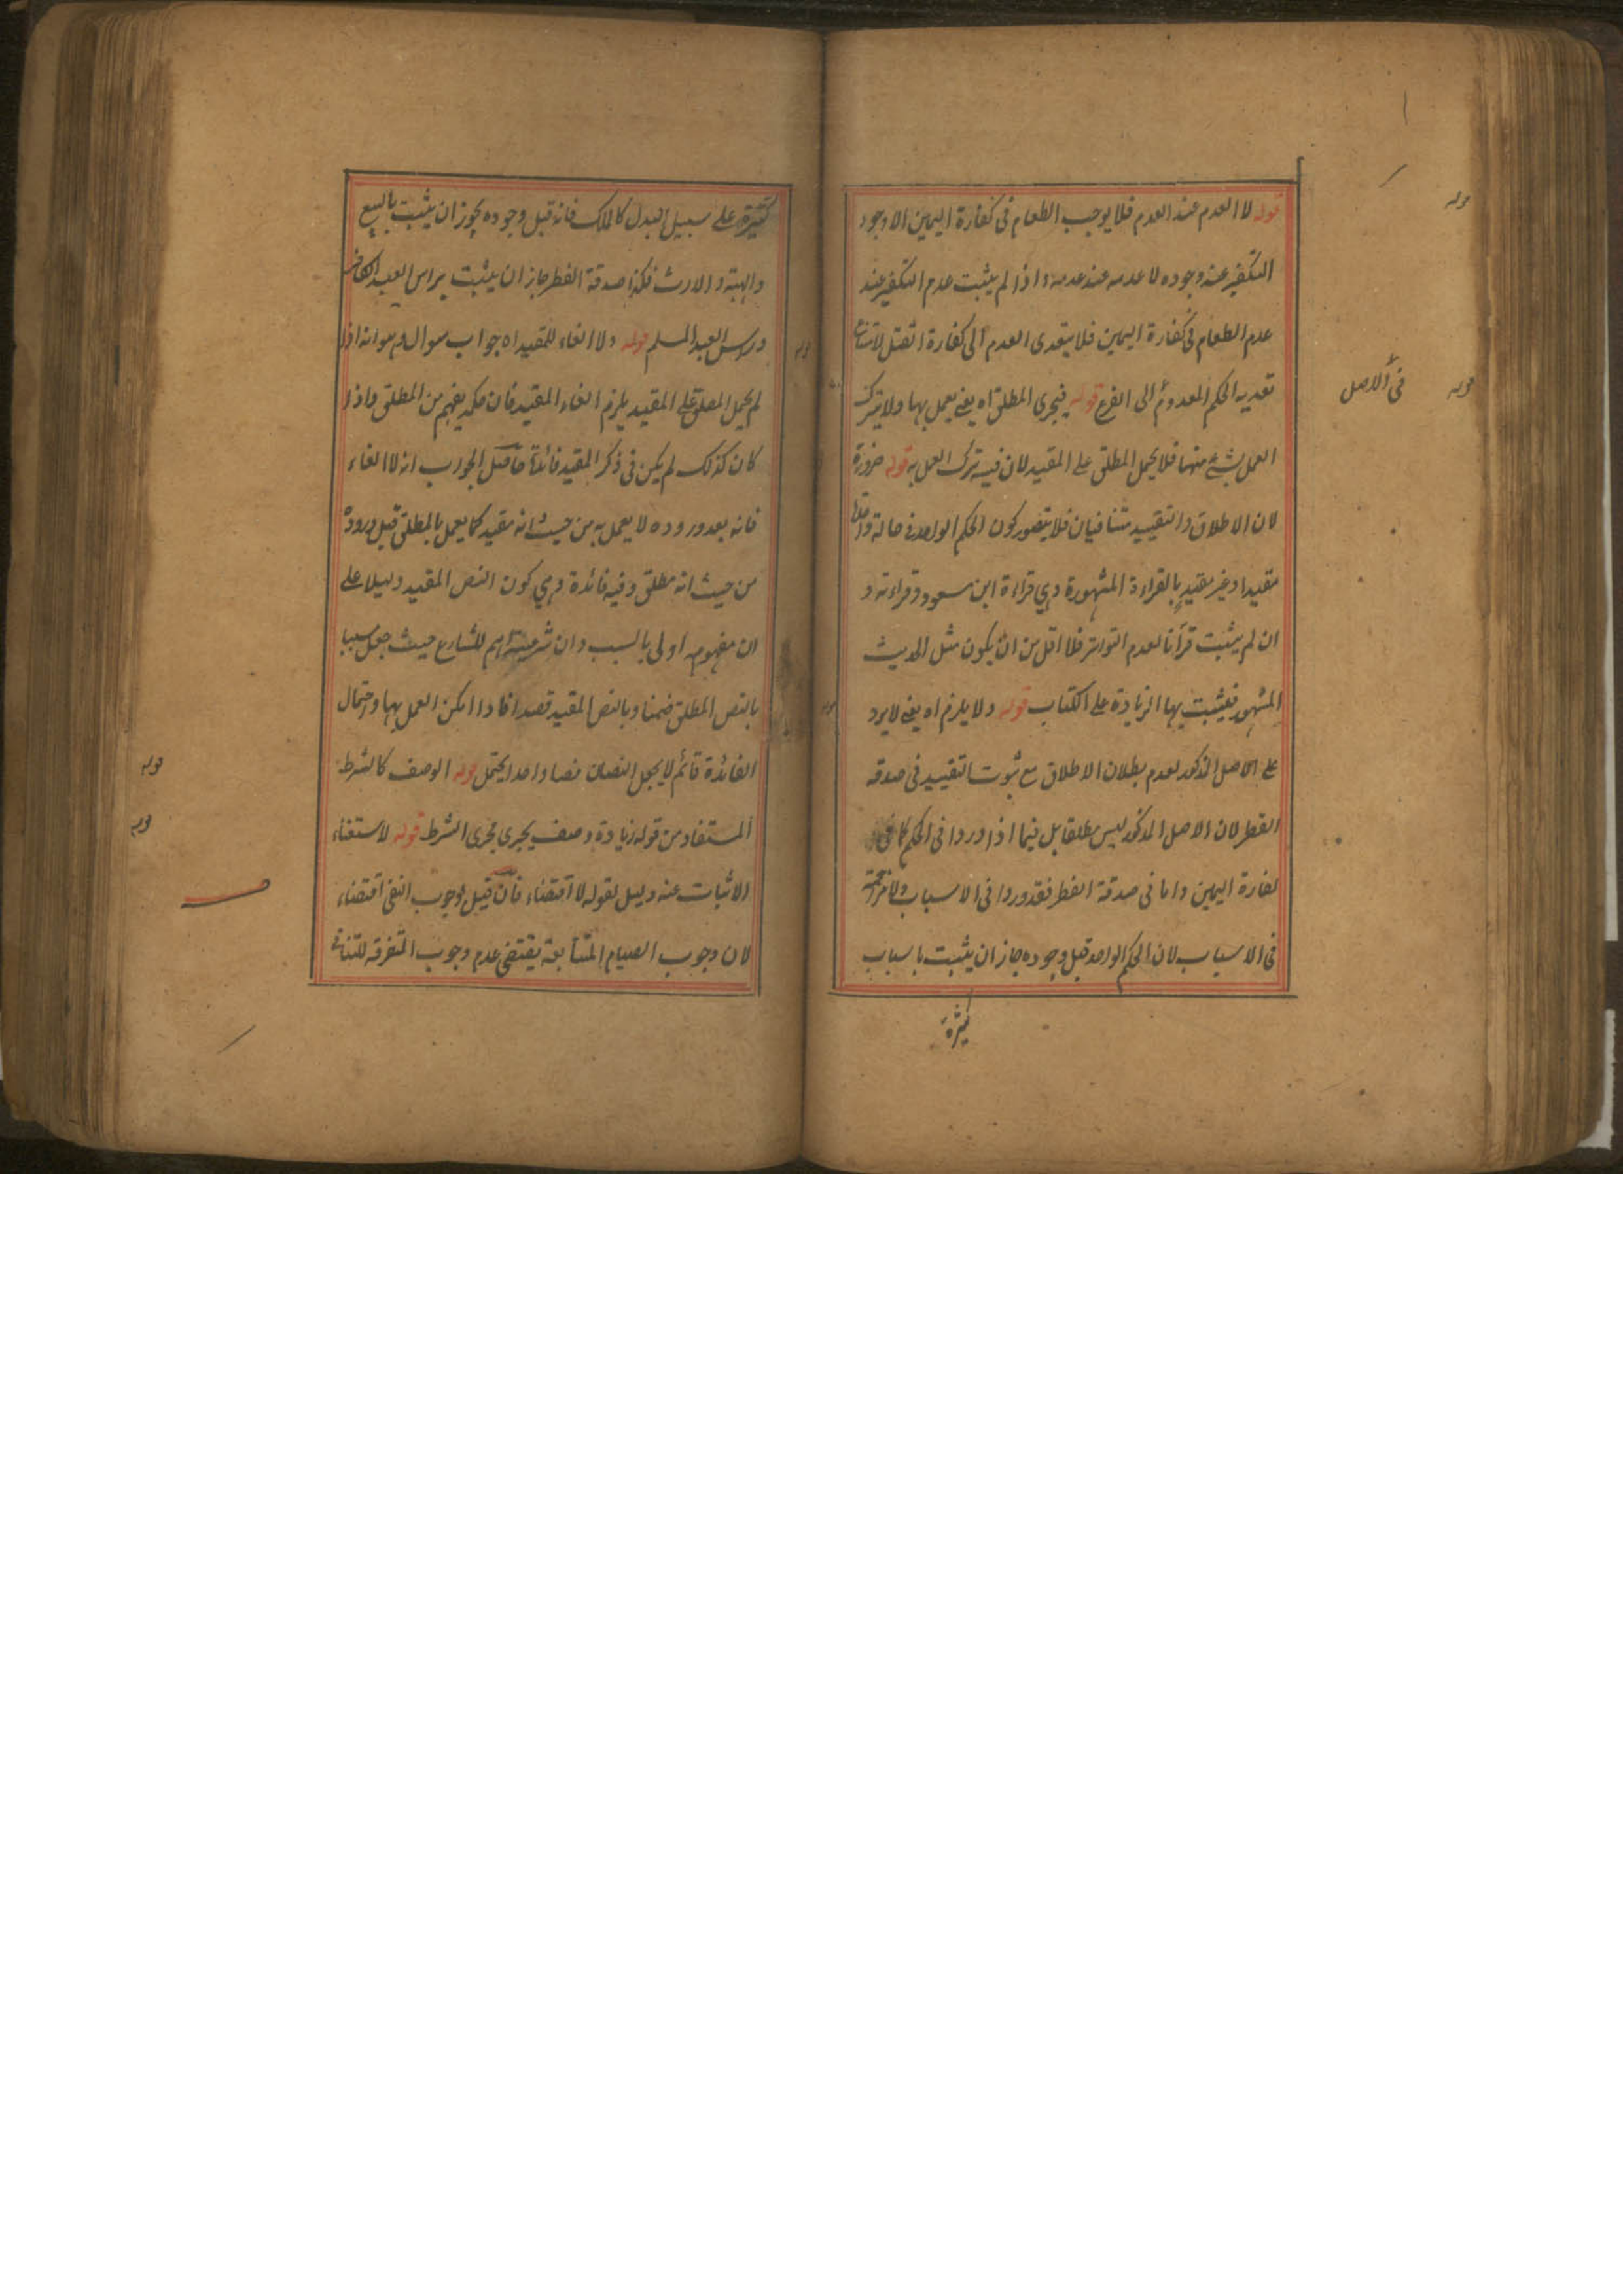 قوله لا العدم عند العدم فلا يوجب الطعام فى كفارة اليمين الا وجود
التكفير عند وجوده لا عدمه عند عدمه واذا لم يثبت عدم التكفير عند
عدم الطعام فى كفارة اليمين فلا يتعدى العدم الى كفارة القتل لامتناع
تعدية الحكم المعدوم الى الفرع قوله فيجرى المطلق اه يعنى يعمل بها ولا يترك
العمل بشئ منهما فلا يحمل المطلق على المقيد لان فيه ترك العمل به قوله ضرورة
لان الاطلاق والتقييد متنافيان فلا يتصور كون الحكم الواحد فى حالة واحدة
مقيدا وغير مقيد بالقراءة المشهورة وهي قراءة ابن مسعود وقراءته و
ان لم يثبت قرآنا لعدم التواتر فلا اقل من ان يكون مثل الحديث
المشهور فيثبت بها الزيادة على الكتاب قوله ولا يلزم اه يعنى لا يرد
على الاصل المذكور لعدم بطلان الاطلاق مع ثبوت التقييد فى صدقه
الفطر لان الاصل المذكور ليس مطلقا بل فيما اذا وردا فى الحكم كما فى
كفارة اليمين واما فى صدقة الفطر فقد وردا فى الاسباب ولا مزاحمة
فى الاسباب لان الحكم الواحد قبل وجوده جاز ان يثبت باسباب
كثيرة
قوله
فى الاصل
قوله
كثيرة على سبيل البدل كالملك فانه قبل وجوده يجوز ان يثبت بالبيع
والهبة والارث فكذا صدقة الفطر جاز ان يثبت براس العبد الكافر
وراس العبد المسلم قوله ولا الغاء للمقيد اه جواب سوال وهو انه اذا
لم يحمل المطلق على المقيد يلزم الغاء المقيد فان حكمه يفهم من المطلق واذا
كان كذلك لم يكن فى ذكر المقيد فائدة حاصل الجواب انه لا الغاء
فانه بعد وروده لا يعمل به من حيث انه مقيد كما يعمل بالمطلق قبل وروده
من حيث انه مطلق وفيه فائدة وهي كون النص المقيد دليلا على
ان مفهومه اولى بالسبب وان شرعيته اهم للشارع حيث جعل سببا
بالنص المطلق ضمنا وبالنص المقيد قصدا فاذا امكن العمل بهما واحتمال
الفائدة قائم لا يجعل النصان نصا واحدا يحتمل قوله الوصف كالشرط
المستفاد من قوله زيادة وصف يجرى مجرى الشرط قوله لاستغناء
الاثبات عنه دليل لقوله لا اقتضاء فان قيل وجوب النفى اقتضاء
لان وجوب الصيام المتتابعة يقتضى عدم وجوب المتفرقه للتنافى
قوله
قوله